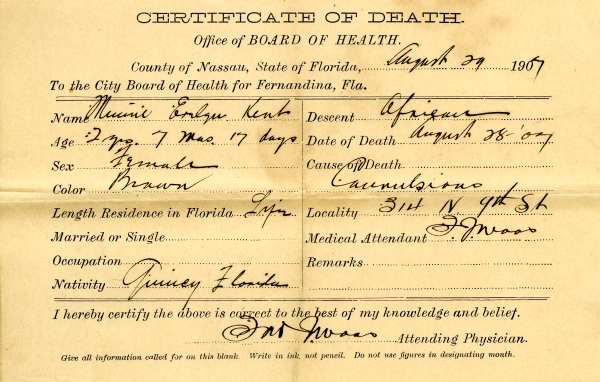 CERTIFICATE OF DEATH.
Office of BOARD OF HEALTH.
County of Nassau, State of Florida, August 29 1907
To the City Board of Health for Fernandina, Fla.
Name Minnie Evelyn Kent
Age 2 yrs. 7 mos. 17 days
Sex Female
Color Brown
Length Residence in Florida Life
Married or Single
Occupation
Nativity Quincy Florida
Descent African
Date of Death August 28-'07
Cause of Death
Convulsions
Locality 314 N 9th St
Medical Attendant
Remarks
I hereby certify the above is correct to the best of my knowledge and belief.
Attending Physician.
Give all information called for on this blank. Write in ink, not pencil. Do not use figures in designating month.